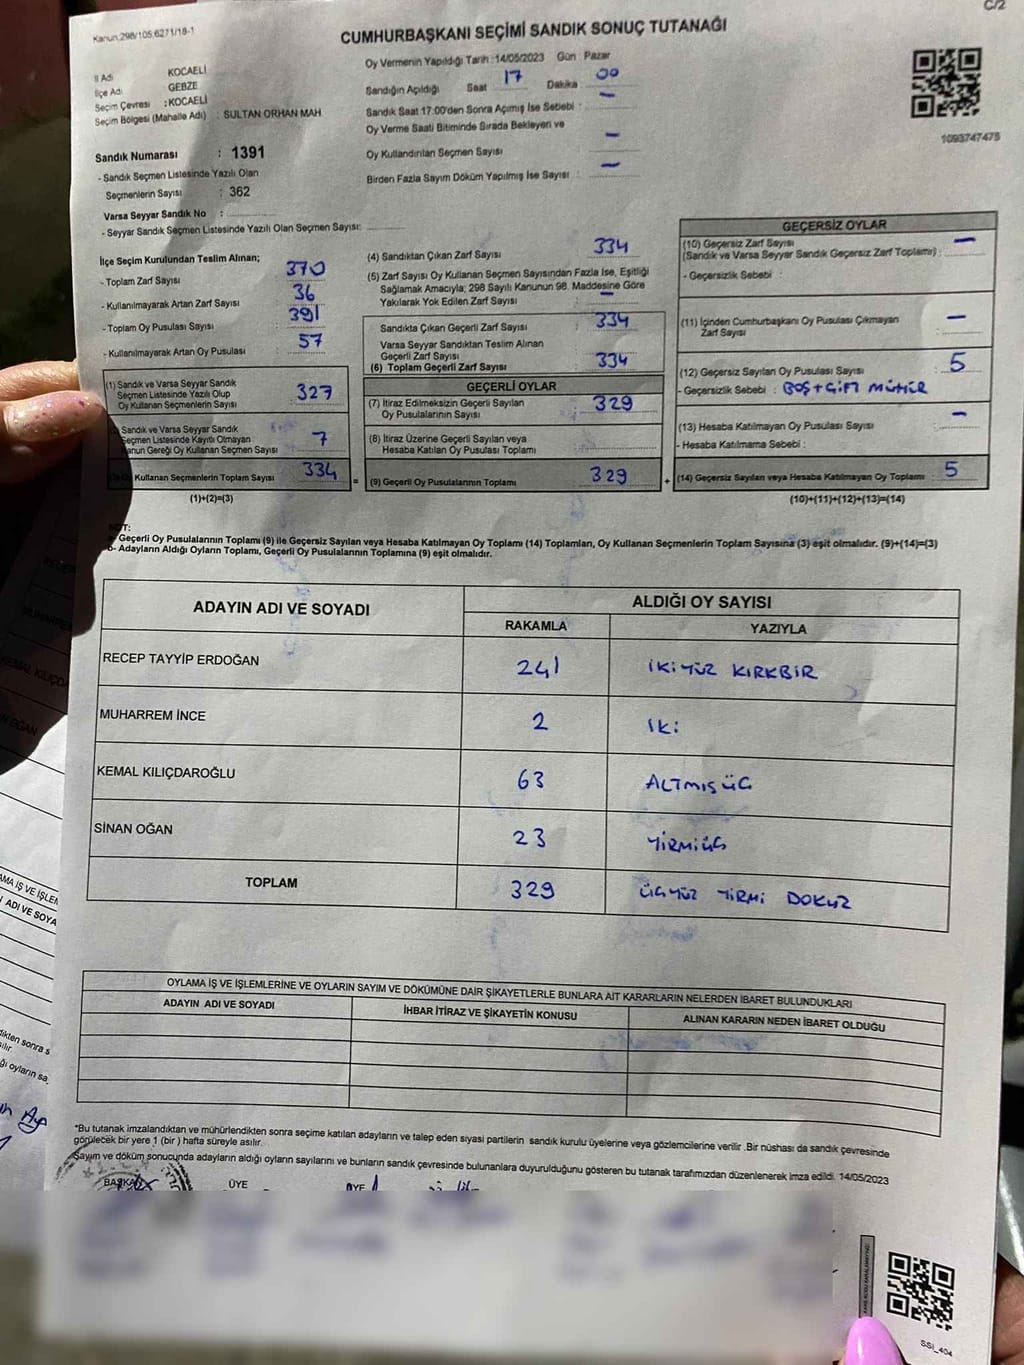 C/2
Kanun;298/105,6271/18-1
CUMHURBAŞKANI SEÇİMİ SANDIK SONUÇ TUTANAĞI
İl Adı KOCAELİ
İlçe Adı GEBZE
Seçim Çevresi : KOCAELİ
Seçim Bölgesi (Mahalle Adı) : SULTAN ORHAN MAH
Oy Vermenin Yapıldığı Tarih :14/05/2023 Gün : Pazar
Sandığın Açıldığı Saat 17 Dakika 00
Sandık Saat 17:00'den Sonra Açımış İse Sebebi : —
Oy Verme Saati Bitiminde Sırada Bekleyen ve
Oy Kullandırılan Seçmen Sayısı —
Birden Fazla Sayım Döküm Yapılmış İse Sayısı : —
1093747475
Sandık Numarası : 1391
- Sandık Seçmen Listesinde Yazılı Olan
Seçmenlerin Sayısı : 362
Varsa Seyyar Sandık No :
- Seyyar Sandık Seçmen Listesinde Yazılı Olan Seçmen Sayısı:
İlçe Seçim Kurulundan Teslim Alınan;
- Toplam Zarf Sayısı : 370
- Kullanılmayarak Artan Zarf Sayısı : 36
- Toplam Oy Pusulası Sayısı : 391
- Kullanılmayarak Artan Oy Pusulası : 57
(1) Sandık ve Varsa Seyyar Sandık
Seçmen Listesinde Yazılı Olup
Oy Kullanan Seçmenlerin Sayısı : 327
Sandık ve Varsa Seyyar Sandık
Seçmen Listesinde Kayıtlı Olmayan
Kanun Gereği Oy Kullanan Seçmen Sayısı : 7
Kullanan Seçmenlerin Toplam Sayısı : 334
(1)+(2)=(3)
(4) Sandıktan Çıkan Zarf Sayısı : 334
(5) Zarf Sayısı Oy Kullanan Seçmen Sayısından Fazla İse, Eşitliği
Sağlamak Amacıyla; 298 Sayılı Kanunun 98. Maddesine Göre
Yakılarak Yok Edilen Zarf Sayısı : —
Sandıkta Çıkan Geçerli Zarf Sayısı : 334
Varsa Seyyar Sandıktan Teslim Alınan
Geçerli Zarf Sayısı
(6) Toplam Geçerli Zarf Sayısı : 334
GEÇERLİ OYLAR
(7) İtiraz Edilmeksizin Geçerli Sayılan
Oy Pusulalarının Sayısı : 329
(8) İtiraz Üzerine Geçerli Sayılan veya
Hesaba Katılan Oy Pusulası Toplamı :
= (9) Geçerli Oy Pusulalarının Toplamı : 329
GEÇERSİZ OYLAR
(10) Geçersiz Zarf Sayısı —
(Sandık ve Varsa Seyyar Sandık Geçersiz Zarf Toplamı) :
- Geçersizlik Sebebi :
(11) İçinden Cumhurbaşkanı Oy Pusulası Çıkmayan
Zarf Sayısı : —
(12) Geçersiz Sayılan Oy Pusulası Sayısı : 5
- Geçersizlik Sebebi : BOŞ+ÇİFT MÜHÜR
(13) Hesaba Katılmayan Oy Pusulası Sayısı : —
- Hesaba Katılmama Sebebi :
+ (14) Geçersiz Sayılan veya Hesaba Katılmayan Oy Toplamı : 5
(10)+(11)+(12)+(13)=(14)
NOT:
a- Geçerli Oy Pusulalarının Toplamı (9) ile Geçersiz Sayılan veya Hesaba Katılmayan Oy Toplamı (14) Toplamları, Oy Kullanan Seçmenlerin Toplam Sayısına (3) eşit olmalıdır. (9)+(14)=(3)
b- Adayların Aldığı Oyların Toplamı, Geçerli Oy Pusulalarının Toplamına (9) eşit olmalıdır.
ADAYIN ADI VE SOYADI ALDIĞI OY SAYISI
RAKAMLA YAZIYLA
RECEP TAYYİP ERDOĞAN 241 İKİYÜZ KIRKBİR
MUHARREM İNCE 2 İKİ
KEMAL KILIÇDAROĞLU 63 ALTMIŞÜÇ
SİNAN OĞAN 23 YİRMİÜÇ
TOPLAM 329 ÜÇYÜZ YİRMİ DOKUZ
OYLAMA İŞ VE İŞLEMLERİNE VE OYLARIN SAYIM VE DÖKÜMÜNE DAİR ŞİKAYETLERLE BUNLARA AİT KARARLARIN NELERDEN İBARET BULUNDUKLARI
ADAYIN ADI VE SOYADI İHBAR İTİRAZ VE ŞİKAYETİN KONUSU ALINAN KARARIN NEDEN İBARET OLDUĞU
*Bu tutanak imzalandıktan ve mühürlendikten sonra seçime katılan adayların ve talep eden siyasi partilerin sandık kurulu üyelerine veya gözlemcilerine verilir .Bir nüshası da sandık çevresinde
görülecek bir yere 1 (bir ) hafta süreyle asılır.
Sayım ve döküm sonucunda adayların aldığı oyların sayılarını ve bunların sandık çevresinde bulunanlara duyurulduğunu gösteren bu tutanak tarafımızdan düzenlenerek imza edildi. 14/05/2023
BAŞKAN ÜYE ÜYE
SSI_404